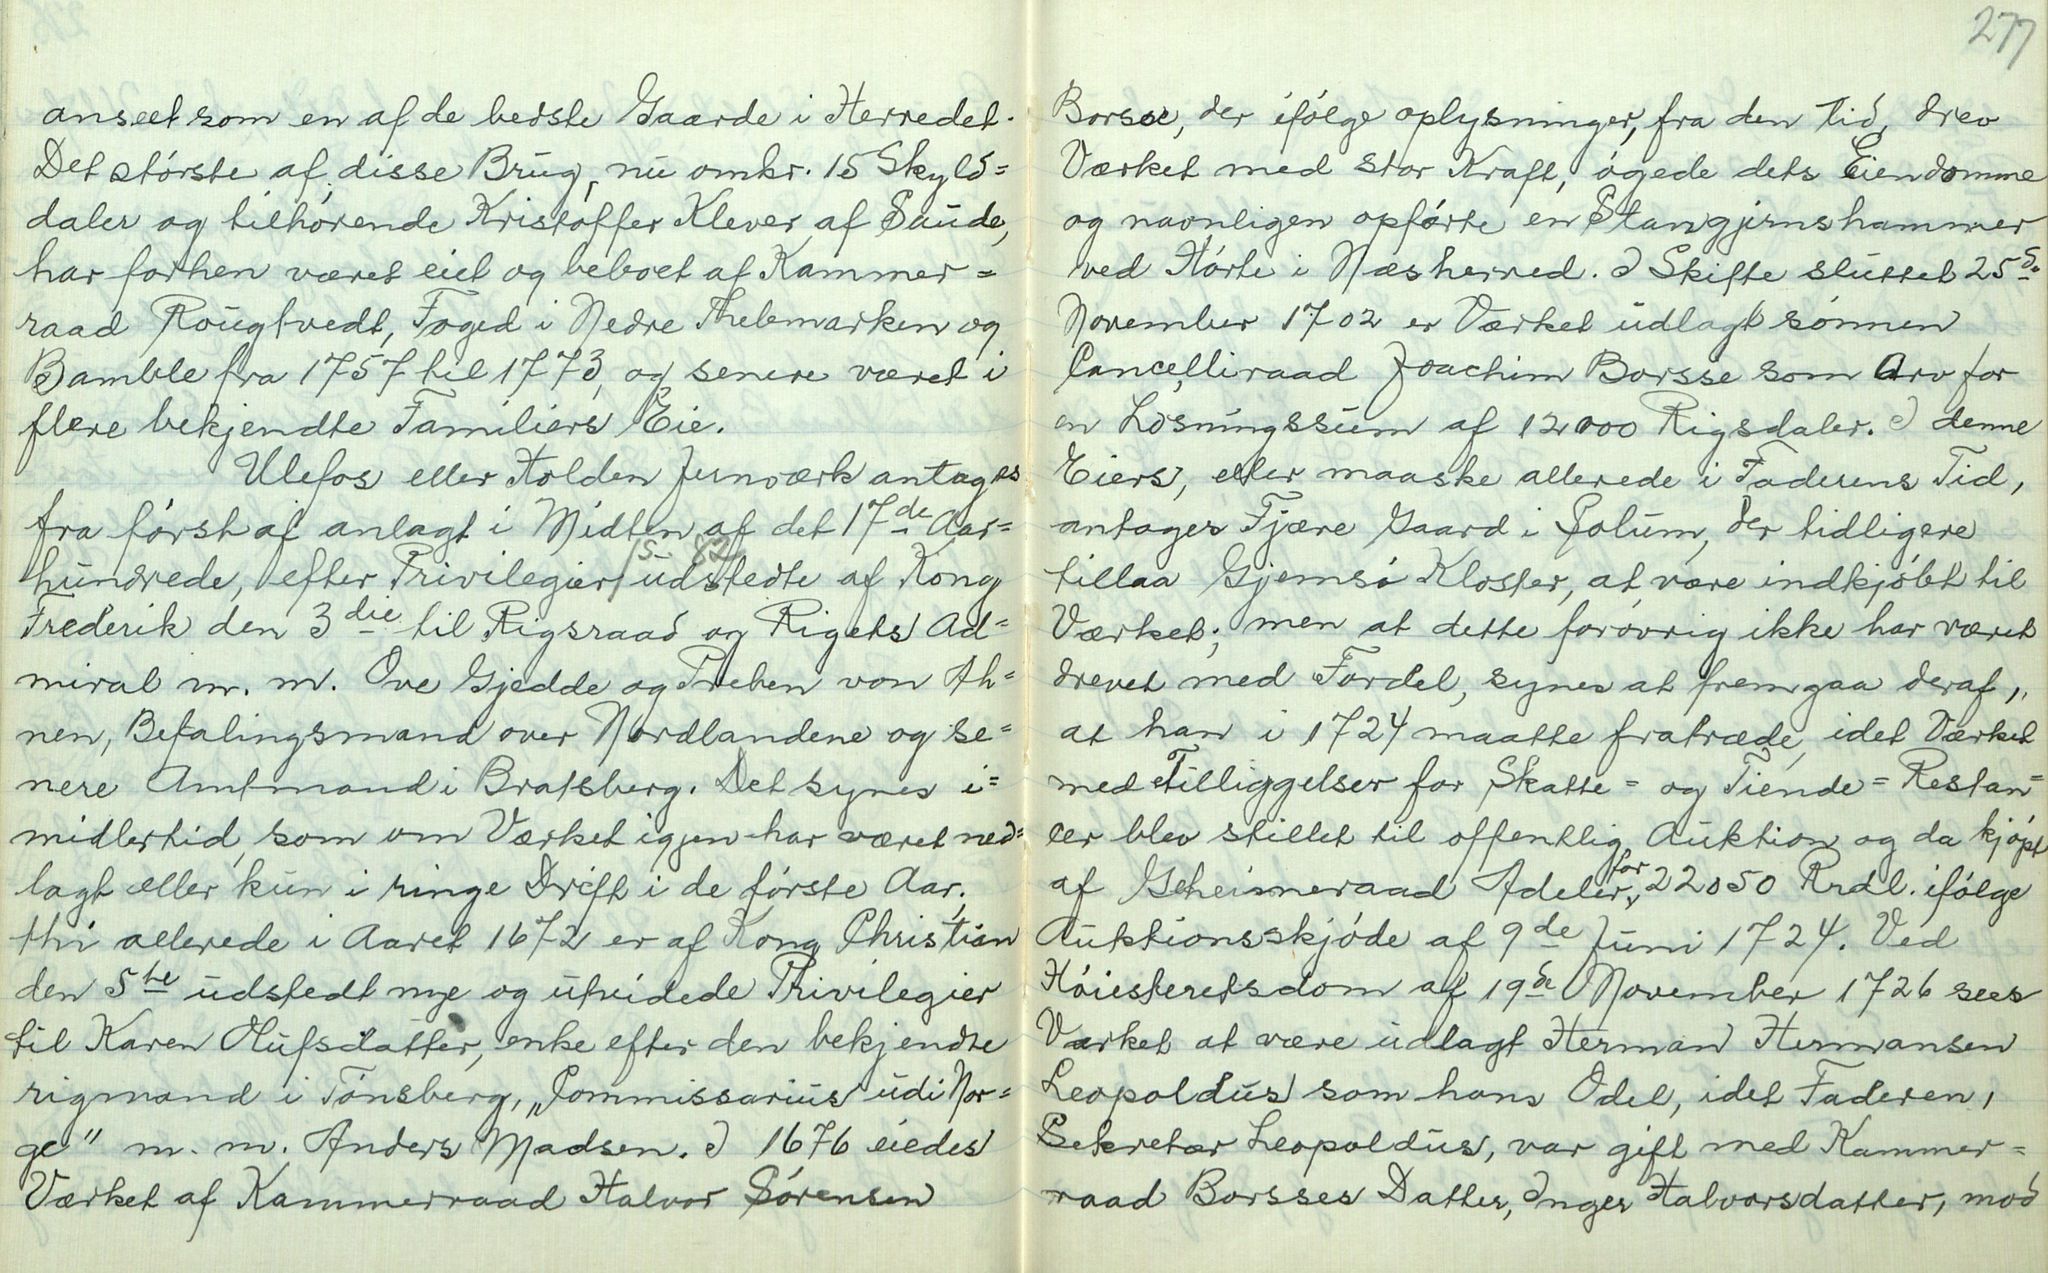 277
anseet som en af de bedste Gaarde i Herredet.
Det største af disse Brug, nu omkr. 15 Skyld=
daler og tilhørende Kristoffer Klever af Saude,
har forhen været eiet og beboet af Kammer=
raad Rougtvedt, Foged i Nedre Thelemarken og
Bamble fra 1757 til 1773, og senere været i
flere bekjendte Familiers Eie.
Ulefos eller Holden Jernværk antages
fra først af anlagt i Midten af det 17de Aar=
hundrede, efter Privilegier udstedte af Kong
Frederik den 3die til Rigsraad og Rigets Ad=
miral m. m. Ove Gjedde og Preben von Ah=
nen, Befalingsmand over Nordlandene og se=
nere Amtmand i Bratsberg. Det synes i=
midlertid, som om Værket igjen har været ned=
lagt eller kun i ringe Drift i de første Aar,
thi allerede i Aaret 1672 er af Kong Christian
den 5te udstedt nye og utvidede Privilegier
til Karen Olufsdatter, enke efter den bekjendte
rigmand i Tønsberg, „Commissarius udi Nor=
ge" m. m. Anders Madsen. I 1676 eiedes
Værket af Kammerraad Halvor Sørensen
Borsse, der ifølge oplysninger, fra den tid, drev
Værket med stor Kraft, øgede dets Eiendomme
og navnligen opførte en Stangjernshammer
ved Hørte i Næsherred. I Skifte sluttet 25de
November 1702 er Værket udlagt sønnen
Cancelliraad Joachim Borsse som Arv for
en Løsningssum af 12000 Rigsdaler. I denne
Eiers, eller maaske allerede i Faderens Tid,
antages Fjære Gaard i Solum, der tidligere
tillaa Gjemsø Kloster, at være indkjøbt til
Værket; men at dette forøvrig ikke har været
drevet med Fordel, synes at fremgaa deraf,
at han i 1724 maatte fratræde, idet Værket
med Tilliggelser for Skatte= og Tiende=Restan=
cer blev stillet til offentlig Auktion og da kjøpt
af Geheimeraad Adeler, for 22050 Rrdl. ifølge
Auktionsskjøde af 9de Juni 1724. Ved
Høiesteretsdom af 19de November 1726 sees
Værket at være udlagt Herman Hermansen
Leopoldus som hans Odel, idet Faderen,
Sekretær Leopoldus, var gift med Kammer=
raad Borsses Datter, Inger Halvorsdatter, mod